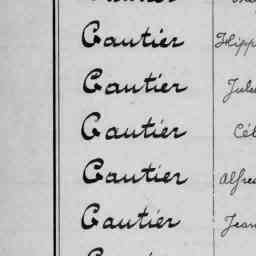 Gautier Hipp
Gautier Jule
Gautier Cél
Gautier Alfre
Gautier Jean